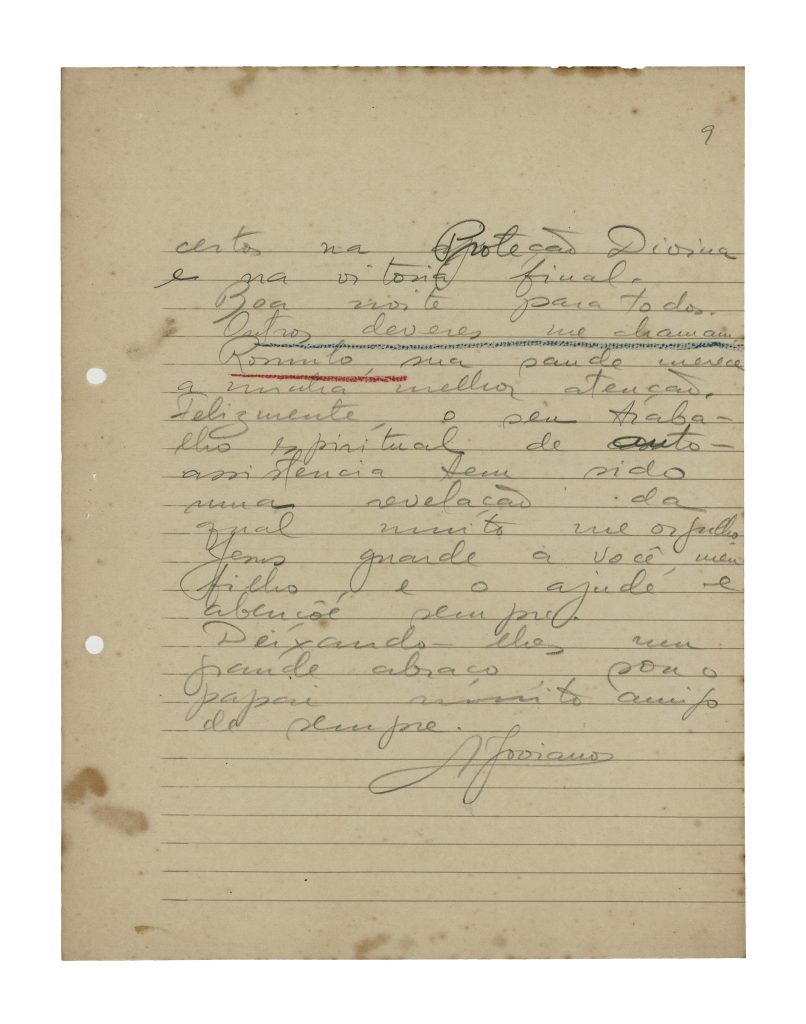 9
certos na Proteção Divina
e na vitoria final.
Boa noite para todos.
Outros deveres me chamam.
Romulo, sua saude merece
a minha melhor atenção.
Felizmente, o seu traba-
lho espiritual de auto-
assistencia tem sido
uma revelação da
qual muito me orgulho
Jesus guarde a você, meu
filho, e o ajude e
abençôe sempre.
Deixando-lhes um
grande abraço, sou o
papai muito amigo
de sempre.
A Joviano